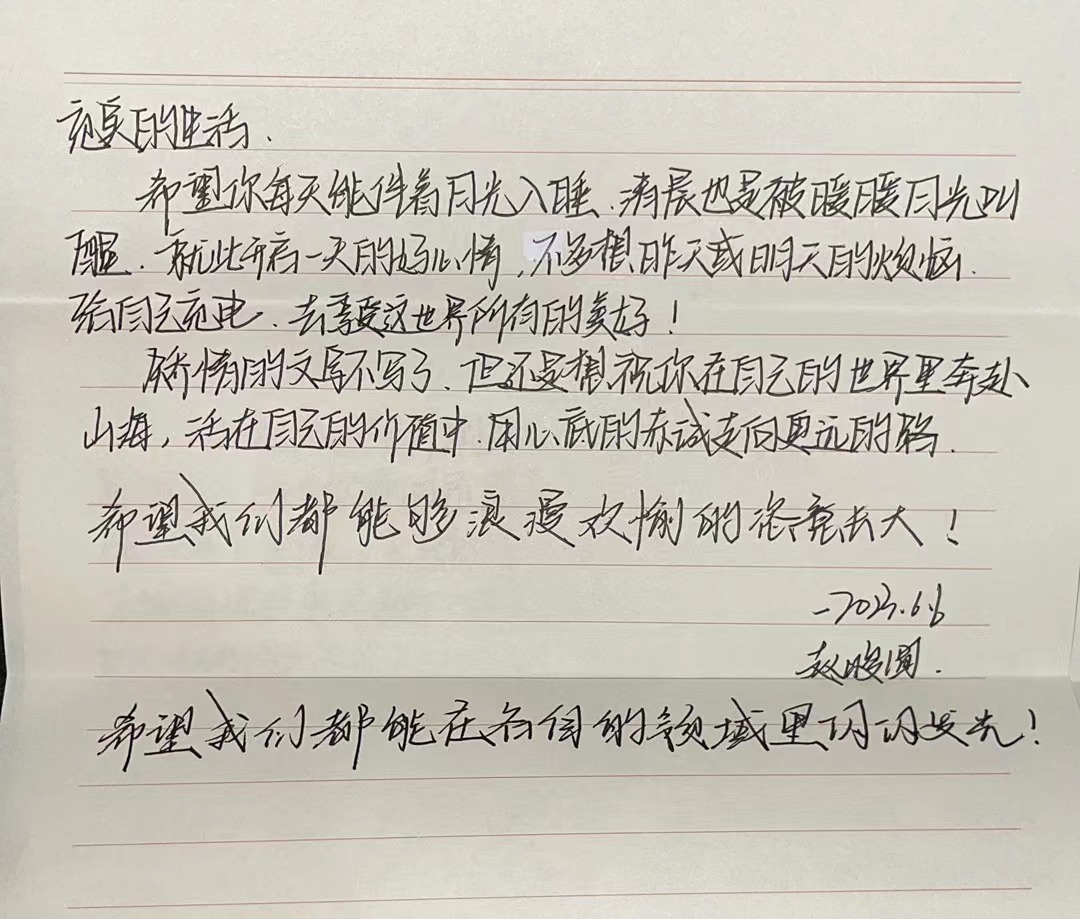 充实的生活.
希望你每天能伴着月光入睡.清晨也是被暖暖日光叫
醒.就此开启一天的好心情,不多想昨天或明天的烦恼.
给自己充电.去享受这世界所有的美好!
矫情的文字不写了.但还是想祝你在自己的世界里奔赴
山海,活在自己的价值中.用心底的赤诚走向更远的路.
希望我们都能够浪漫欢愉的疯尧长大!
-2023.6.6
赵晙圆.
希望我们都能在各自的领域里闪闪发光!